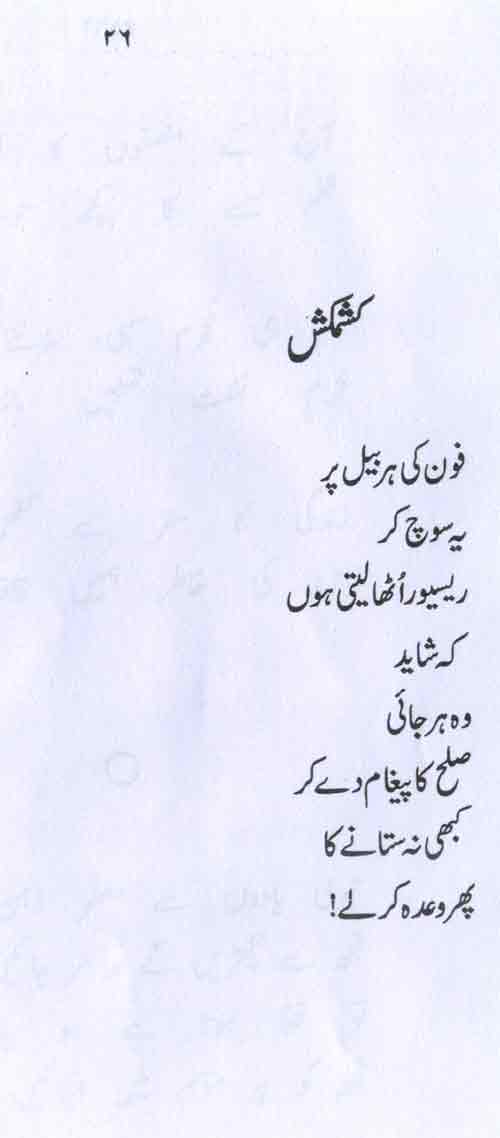 ۲۶
کشمکش
فون کی ہر بیل پر
یہ سوچ کر
ریسیور اُٹھا لیتی ہوں
کہ شاید
وہ ہرجائی
صلح کا پیغام دے کر
کبھی نہ ستانے کا
پھر وعدہ کر لے!